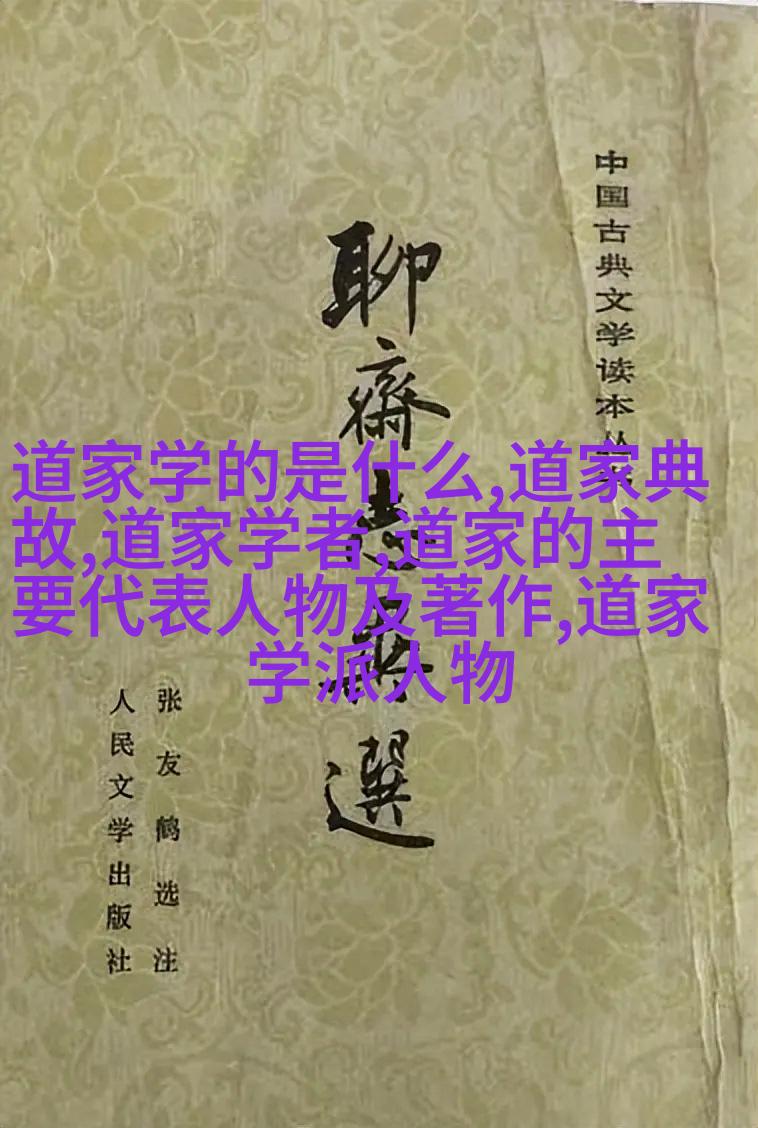 中国古典文学读本丛书
聊齋志異選
张友鹤选注
人民文学出版社
道家学的是什么,道家典
故,道家学者,道家的主
要代表人物及著作,道家
学派人物